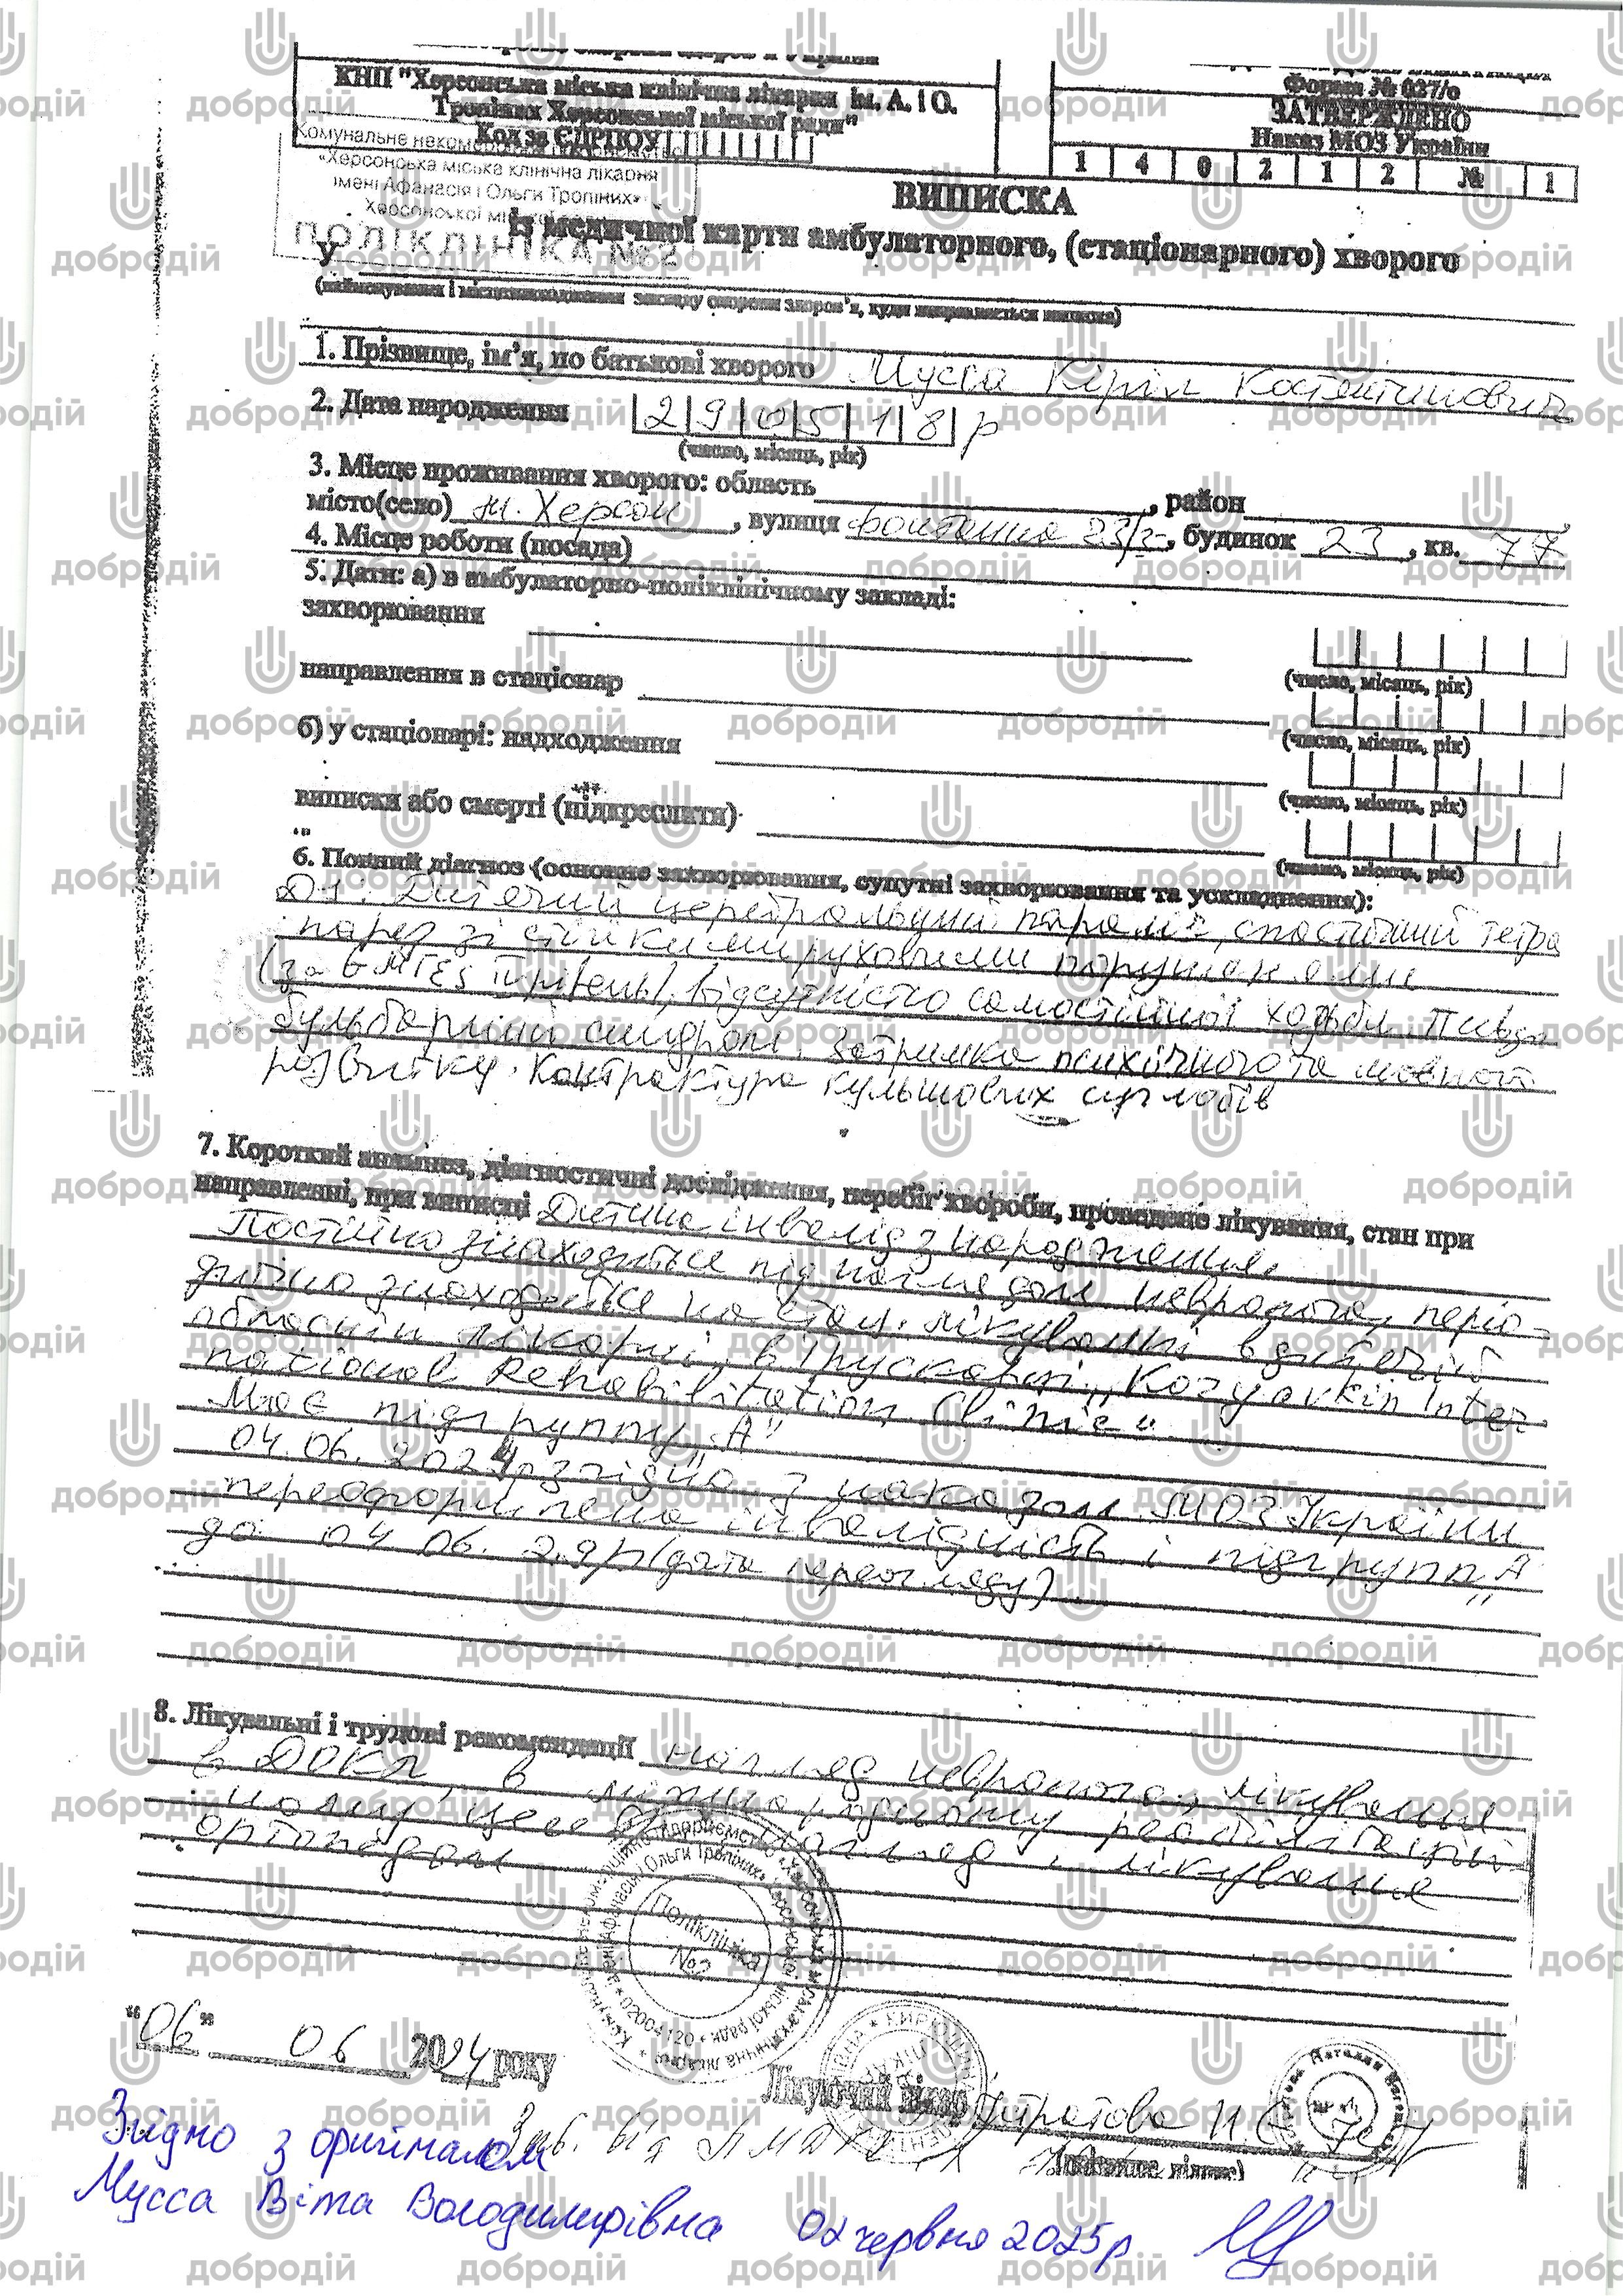 КНП "Херсонська міська клінічна лікарня ім. А. і О.
Тропіних Херсонської міської ради"
Код за ЄДРПОУ
Форма № 027/о
ЗАТВЕРДЖЕНО
Наказ МОЗ України
1 4 0 2 1 2 № 1
Комунальне некомерційне
«Херсонська міська клінічна лікарня
імені Афанасія і Ольги Тропіних»
Херсонської міської
ПОЛІКЛІНІКА №2
ВИПИСКА
із медичної карти амбулаторного, (стаціонарного) хворого
У
(найменування і місцезнаходження закладу охорони здоров'я, куди направляється виписка)
1. Прізвище, ім'я, по батькові хворого Мусса Кіріл Костянтинович
2. Дата народження 2 9 0 5 1 8 р
(число, місяць, рік)
3. Місце проживання хворого: область , район ,
місто(село) м. Херсон , вулиця 23/2 , будинок 23 , кв. 77
4. Місце роботи (посада)
5. Дати: а) в амбулаторно-поліклінічному закладі:
захворювання
(число, місяць, рік)
направлення в стаціонар
(число, місяць, рік)
б) у стаціонарі: надходження
(число, місяць, рік)
виписки або смерті (підкреслити)
(число, місяць, рік)
6. Повний діагноз (основне захворювання, супутні захворювання та ускладнення):
Дз: Дитячий церебральний параліч, спастичний тетра
парез зі стійкими руховими порушеннями
(за GMFCS рівень), відсутністю самостійної ходьби. Псевдо
бульбарний синдром. Затримка психічного та мовного
розвитку. Контрактура кульшових суглобів
7. Короткий анамнез, діагностичні дослідження, перебіг хвороби, проведене лікування, стан при
направленні, при виписці Дитина інвалід з народження.
Постійно знаходиться під наглядом невролога, періо-
дично знаходиться на стац. лікуванні в дитячій
обласній лікарні, в Трускавці „Kozyavkin Inter
national Rehabilitation Clinic"
Має підгруппу „А"
04.06.2024р згідно з наказом МОЗ України
переоформлена інвалідність і підгрупп „А"
до 04 06. 29р (дата переогляду)
8. Лікувальні і трудові рекомендації нагляд невролога, лікування
в ДОКЛ, в міжнародному реабілітацій
ному центрі, нагляд і лікування
ортопедом
Поліклініка
№2
02004120
"06" 06 2024 року
Лікуючий лікар
(прізвище, підпис)
Згідно з оригіналом
Мусса Віта Володимирівна 02 червня 2025р
добродій